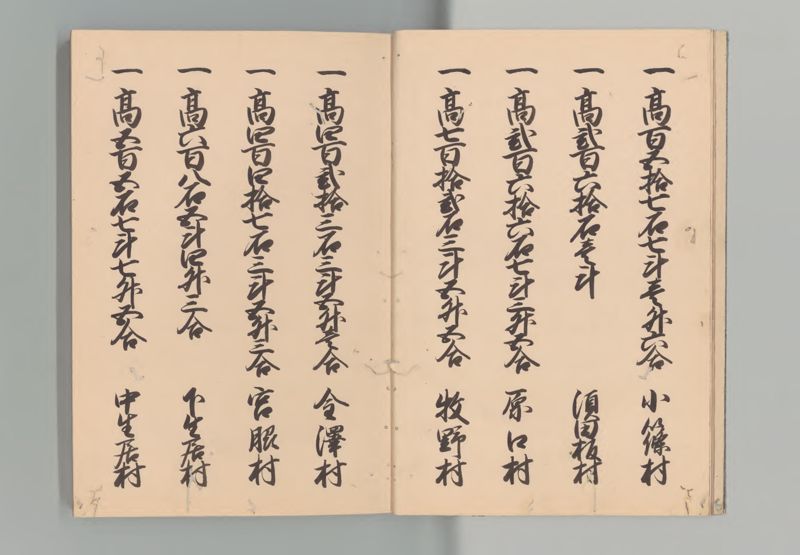 一高百五拾七石七斗壱升六合 小篠村
一高弐百六拾石壱斗 須田板村
一高弐百六拾六石七斗三升五合 原口村
一高七百拾弐石三斗五升五合 牧野村
一高四百弐拾三石三斗五升壱合 金澤村
一高四百四拾七石三斗五升三合 宮脇村
一高六百八石五斗四升三合 下生居村
一高五百五石七斗七升五合 中生居村